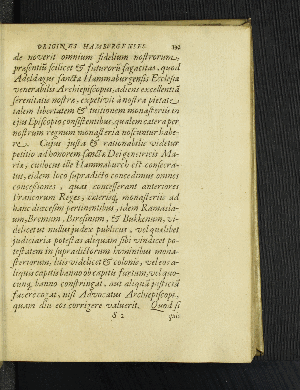 ORIGINES HAMBURGENSES.
de noverit omnium fidelium nostrorum,
præsentiũ scilicet & futurorũ sagacitas, quod
Adeldagus sanctæ Hammaburgensis Ecclesiæ
venerabilis Archiepiscopus, adiens excellentiã
serenitatis nostræ, expetivit à nostra pietate
talem libertatem & tuitionem monasteriis in
ejus Episcopio consistentibus, qualem cætera per
nostrum regnum monasteria noscuntur habe-
re. Cujus justa & rationabilis videtur
petitio ob honorem sanctæ Dei genitricis Ma-
riæ, cui locus ille Hammaburch est consecra-
tus, eidem loco supradicto concedimus omnes
concessiones, quas concesserant anteriores
Francorum Reges, cæterisq, monasteriis ad
hanc diocesim pertinentibus, idem Ramsolu-
un, Bremun, Birsinun, & Bukkenun, vi-
delicet ut nullus judex publicus, vel qualibet
judiciaria potestas aliquam sibi vindicet po-
testatem in supradictorum hominibus mona-
steriorum, litis videlicet & colonis, vel eos a-
liquis capitis banno ob capitis furtum, vel quo-
cunq, banno constringat, aut aliquã justiciã
facere cogat, nisi Advocatus Archiepiscopi,
quam diu eos corrigere valuerit. Quod si
S 2